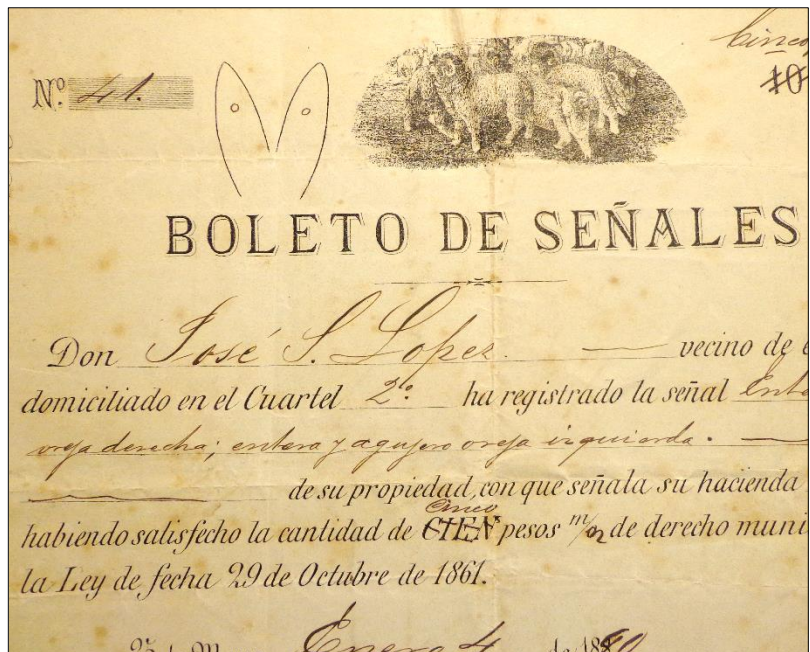 Cinco
Nº 41.
10
BOLETO DE SEÑALES
Don José S. Lopez. vecino de
domiciliado en el Cuartel 2º ha registrado la señal
oreja derecha; entera y agujero oreja izquierda.
de su propiedad, con que señala su hacienda
Cinco
habiendo satisfecho la cantidad de CIEN pesos m/n de derecho muni
la Ley de fecha 29 de Octubre de 1861.
Enero 4 de 18